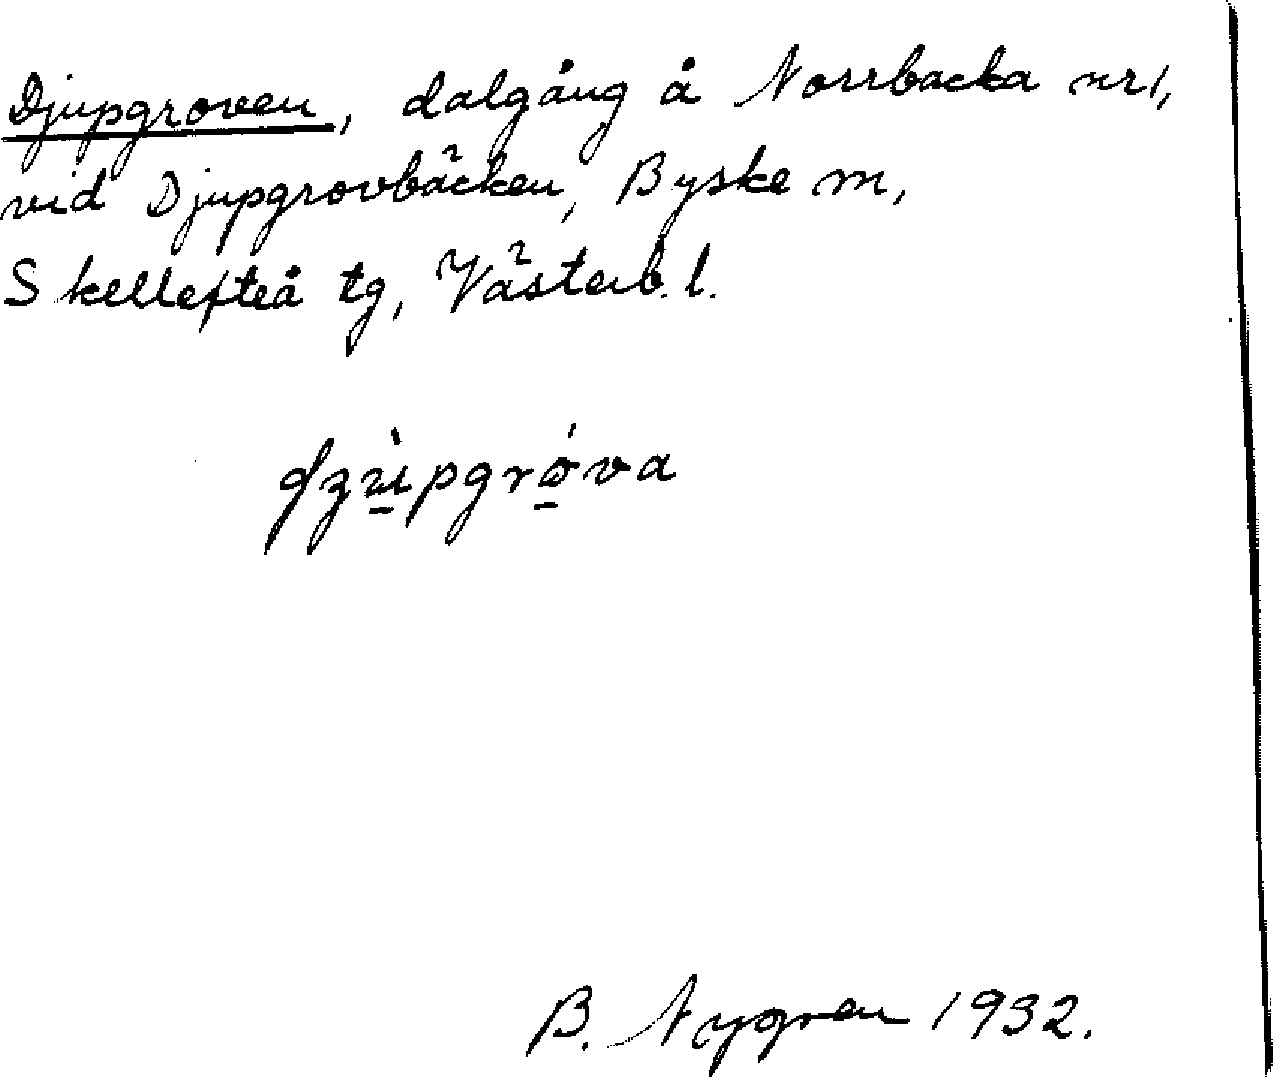 Djupgroven, dalgång å Norrbacka nr 1,
vid Djupgrovbäcken, Byske m,
Skellefteå tg, Västerb. l.
B. Nygren 1932.